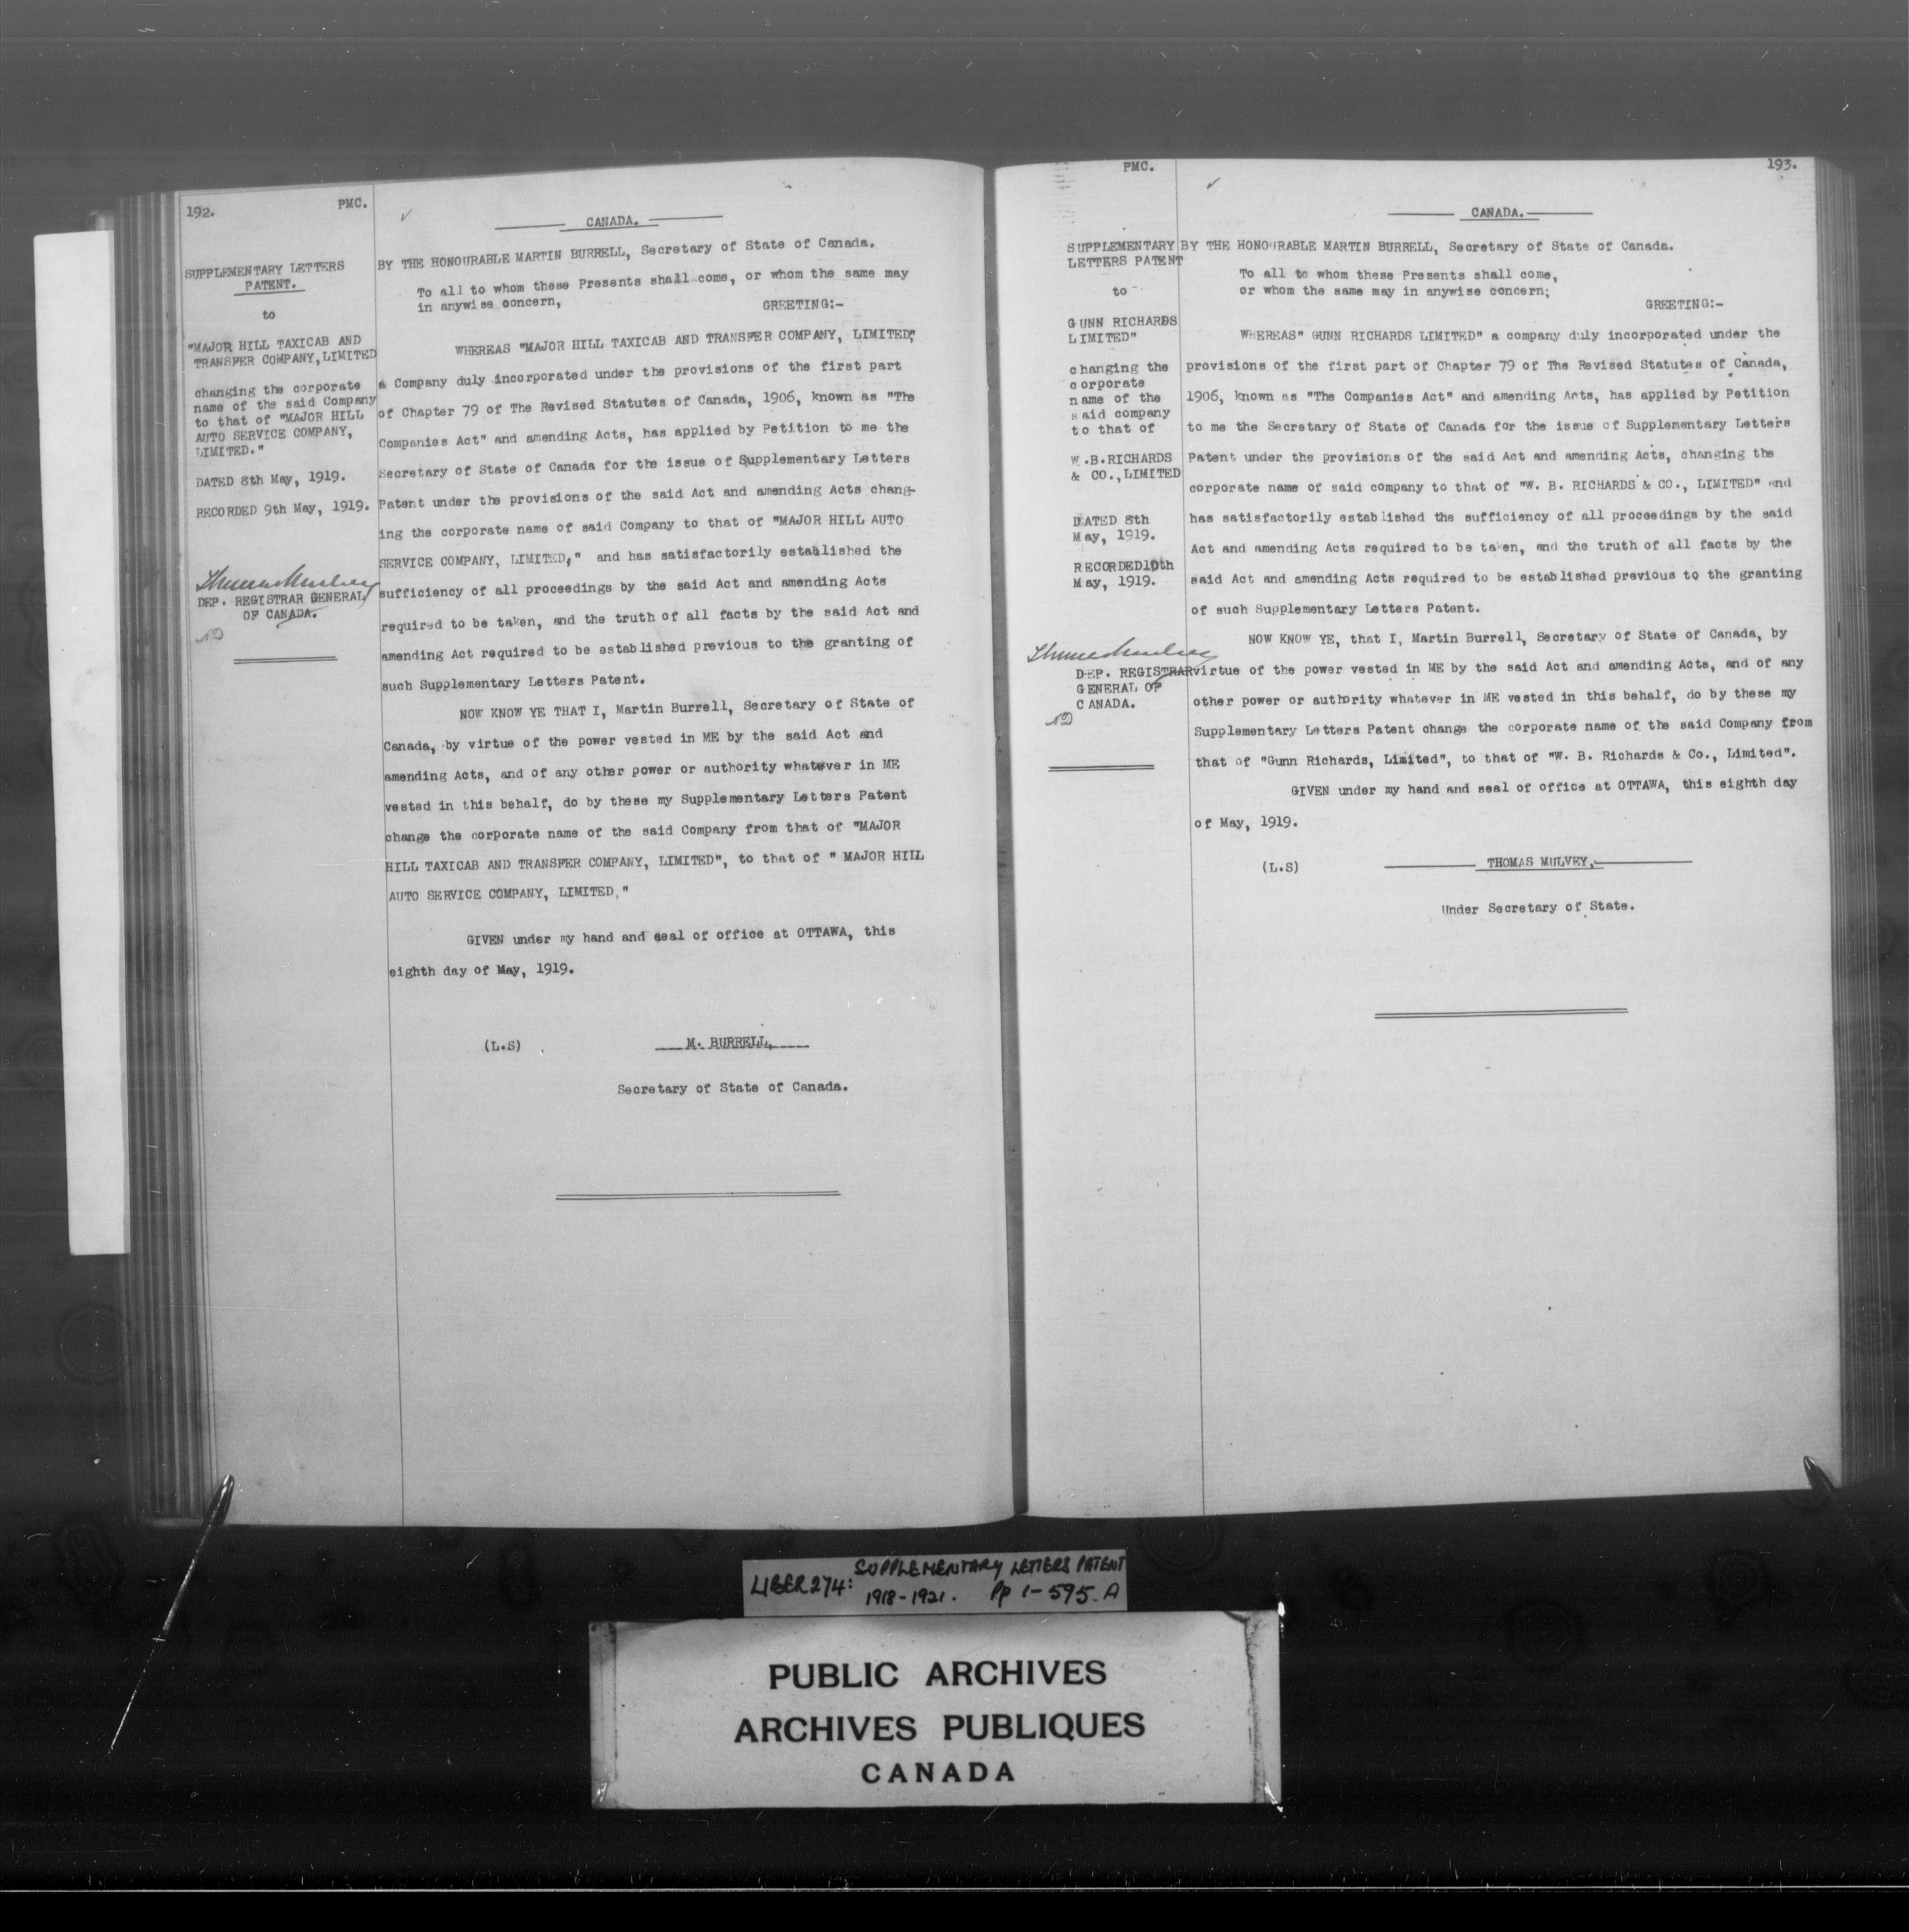 192.
PMC.
SUPPLEMENTARY LETTERS
PATENT.
to
"MAJOR HILL TAXICAB AND
TRANSFER COMPANY, LIMITED
changing the corporate
name of the said Company
to that of "MAJOR HILL
AUTO SERVICE COMPANY,
LIMITED."
DATED 8th May, 1919.
RECORDED 9th May, 1919.
Thomas Mulvey
DEP. REGISTRAR GENERAL
OF CANADA.
ND
CANADA.
BY THE HONOURABLE MARTIN BURRELL, Secretary of State of Canada.
To all to whom these Presents shall come, or whom the same may
in anywise concern, GREETING:-
WHEREAS "MAJOR HILL TAXICAB AND TRANSFER COMPANY, LIMITED",
a Company duly incorporated under the provisions of the first part
of Chapter 79 of The Revised Statutes of Canada, 1906, known as "The
Companies Act" and amending Acts, has applied by Petition to me the
Secretary of State of Canada for the issue of Supplementary Letters
Patent under the provisions of the said Act and amending Acts chang-
ing the corporate name of said Company to that of "MAJOR HILL AUTO
SERVICE COMPANY, LIMITED," and has satisfactorily established the
sufficiency of all proceedings by the said Act and amending Acts
required to be taken, and the truth of all facts by the said Act and
amending Act required to be established previous to the granting of
such Supplementary Letters Patent.
NOW KNOW YE THAT I, Martin Burrell, Secretary of State of
Canada, by virtue of the power vested in ME by the said Act and
amending Acts, and of any other power or authority whatever in ME
vested in this behalf, do by these my Supplementary Letters Patent
change the corporate name of the said Company from that of "MAJOR
HILL TAXICAB AND TRANSFER COMPANY, LIMITED", to that of " MAJOR HILL
AUTO SERVICE COMPANY, LIMITED,"
GIVEN under my hand and seal of office at OTTAWA, this
eighth day of May, 1919.
(L.S) M. BURRELL,
Secretary of State of Canada.
PMC.
193.
SUPPLEMENTARY
LETTERS PATENT
to
GUNN RICHARDS
LIMITED"
changing the
corporate
name of the
said company
to that of
W.B.RICHARDS
& CO., LIMITED
DATED 8th
May, 1919.
RECORDED 10th
May, 1919.
Thomas Mulvey
DEP. REGISTRAR
GENERAL OF
CANADA.
ND
CANADA.
BY THE HONOURABLE MARTIN BURRELL, Secretary of State of Canada.
To all to whom these Presents shall come,
or whom the same may in anywise concern;
GREETING:-
WHEREAS" GUNN RICHARDS LIMITED" a company duly incorporated under the
provisions of the first part of Chapter 79 of The Revised Statutes of Canada,
1906, known as "The Companies Act" and amending Acts, has applied by Petition
to me the Secretary of State of Canada for the issue of Supplementary Letters
Patent under the provisions of the said Act and amending Acts, changing the
corporate name of said company to that of "W. B. RICHARDS & CO., LIMITED" and
has satisfactorily established the sufficiency of all proceedings by the said
Act and amending Acts required to be taken, and the truth of all facts by the
said Act and amending Acts required to be established previous to the granting
of such Supplementary Letters Patent.
NOW KNOW YE, that I, Martin Burrell, Secretary of State of Canada, by
virtue of the power vested in ME by the said Act and amending Acts, and of any
other power or authority whatever in ME vested in this behalf, do by these my
Supplementary Letters Patent change the corporate name of the said Company from
that of "Gunn Richards, Limited", to that of "W. B. Richards & Co., Limited".
GIVEN under my hand and seal of office at OTTAWA, this eighth day
of May, 1919.
(L.S) THOMAS MULVEY,
Under Secretary of State.
LIBER 274: SUPPLEMENTARY LETTERS PATENT
1918-1921. Pp 1-595.A
PUBLIC ARCHIVES
ARCHIVES PUBLIQUES
CANADA